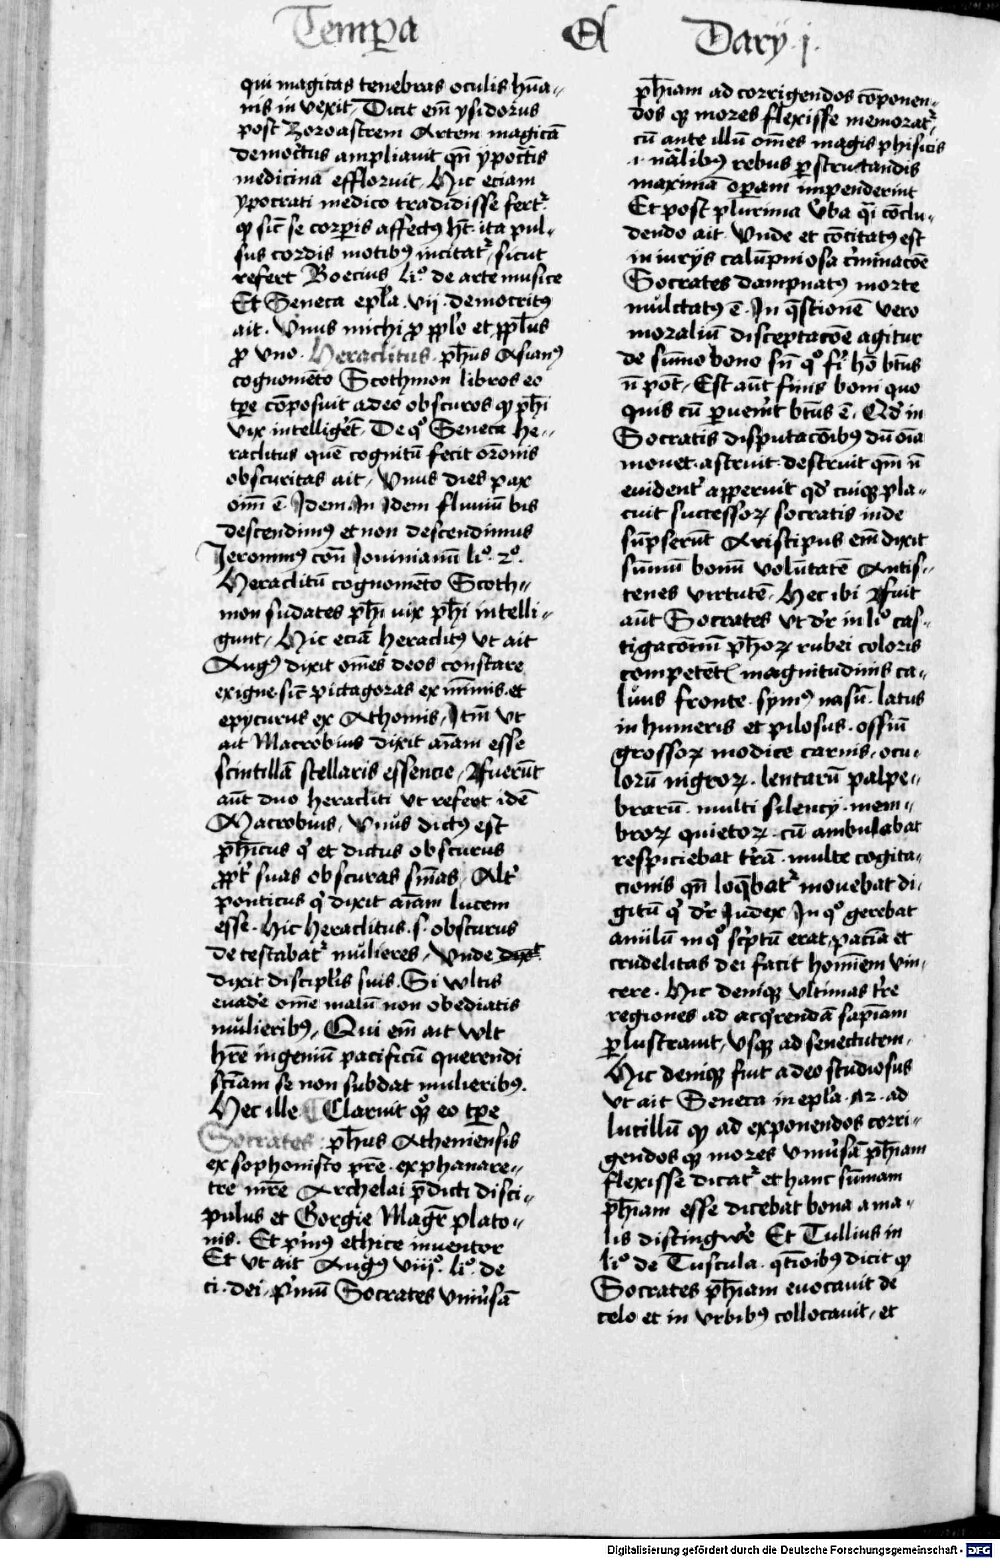 Tempa Et Darij j.
qui magicas tenebras oculis hūa〃
nis in vexit. Dicit em̄ ysidorus
post Zoroastrem Artem magicā
democritus ampliauit qn̄ ypocratis
medicina effloruit. Hic eciam
ypocrati medico tradidisse fertr̄
qꝫ sic̄ se corꝑis affectus hꝫ ita pul〃
sus cordis motibꝰ incitatr̄ sicut
refert Boecius li.º de arte musice
Et Seneca epl̄a vij. democritꝰ
ait. Vnus michi ꝓ ppl̄o et ppl̄us
ꝓ vno. Heraclitus. ph̄us Asianꝰ
cognomēto Scothmon libros eo
tp̄e cōposuit adeo obscuros qꝫ ph̄i
vix intelligēt. De qº Seneca he〃
raclitus quē cognitū fecit or̄onis
obscuritas ait. Vnus dies pax
om̄i ē. Idem In idem fluuiū bis
descendimꝰ et non descendimus
Jeronimꝰ con̄ Jouinianū li.º 2.º
Heraclitū cognomēto Scoth〃
mon sudātes ph̄i uix ph̄i intelli〃
gunt. Hic eciā heraclitꝰ vt ait
Augꝰ dixit om̄es deos constare
ex igne. sic̄ pictagoras ex nūmis. et
epycurus ex Athomis. Itm̄ vt
ait Macrobius dixit aīam esse
scintillā stellaris essencie. Fuerūt
aūt duo heracliti vt refert idē
Macrobius. Vnus dictꝰ est
ph̄icus qi et dictus obscurus
ꝓpt̄ suas obscuras sn̄ias. Alt̄
ponticus qi dixit aīam lucem
esse. Hic heraclitus. s. obscurus
detestabatr̄ mulieres. Vnde
dixit discipl̄is suis. Si wltis
euad̄e om̄e malū non obediatis
mulieribꝰ. Qui em̄ ait wlt
hr̄e ingeniū pacificū querendi
sciam se non subdat mulieribꝰ.
Hec ille. Claruit qꝫ eo tp̄e
Socrates. ph̄us Atheniensis
ex sophonisto pr̄e. ex phanare〃
te mr̄e Archelai p̄dicti disci〃
pulus et Gorgie Magr̄ plato〃
nis. Et primꝰ ethice inuentor
Et vt ait Augꝰ viij.º li.º de
ci. dei. primū Socrates vniusā
ph̄iam ad corrigendos cōponen〃
dos qꝫ mores flexisse memoratr̄
cū ante illū om̄es magis phisicis
.i. nālibꝰ rebus ꝑscrutandis
maximā oꝑam impenderint
Et post plurima v̄ba qi cōclu〃
dendo ait. Vnde et cōcitatꝰ est
iniurijs calūpniosa criminacōe
Socrates dampnatꝰ morte
mulctatꝰ ē. In q̄stionē vero
moraliū disceptacōe agitur
de sūmo bono sn̄ qº fi hō bt̄us
n̄ pōt. Est aūt finis boni quo
quis cū ꝑuen̄it bt̄us ē. Qd̄ in
Socratis disputacōibꝰ dū oīa
mouet. astruit. destruit qm̄ n̄
euident̄ apperuit qd̄ cuiqꝫ pla〃
cuit successorꝝ socratis inde
sūpserūt Aristipus em̄ dixit
sūmū bonū volūtatē Antis〃
tenes virtutē. Hec ibi. Fuit
aūt Socrates vt dr̄ in li.º cas〃
tigacōnū ph̄orꝝ rubei coloris
competēt. magnitudinis ca〃
luus fronte. symꝰ nasū. latus
in humeris et pilosus. ossiū
grossorꝝ modice carnis. ocu〃
lorū nigrorꝝ. lentarū palpe〃
brarū. multi silencij. mem〃
brorꝝ quietorꝝ. cū ambulabat
respiciebat tr̄ā. multe cogita〃
cionis qn̄ loq̄batr̄ mouebat di〃
gitū qi dr̄ Judex. In qº gerebat
anulū in qº scr̄ptū erat. paciā et
crudelitas dei facit hominem vin〃
cere. Hic deniqꝫ vltimas tr̄e
regiones ad acq̄rendā sap̄iam
ꝑlustrauit. vsqꝫ ad senectutem.
Hic deniqꝫ fuit adeo studiosus
vt ait Seneca in epl̄a. 12. ad
lucillū qꝫ ad exponendos corri〃
gendos qꝫ mores vniūsā ph̄iam
flexisse dicatr̄ et hanc sūmam
ph̄iam esse dicebat bona a ma〃
lis disting̃we. Et Tullius in
li.º de Tuscula. qt̄ioibꝰ dicit qꝫ
Socrates ph̄iam euocauit de
celo et in vrbibꝰ collocauit. et
Digitalisierung gefördert durch die Deutsche Forschungsgemeinschaft - DFG